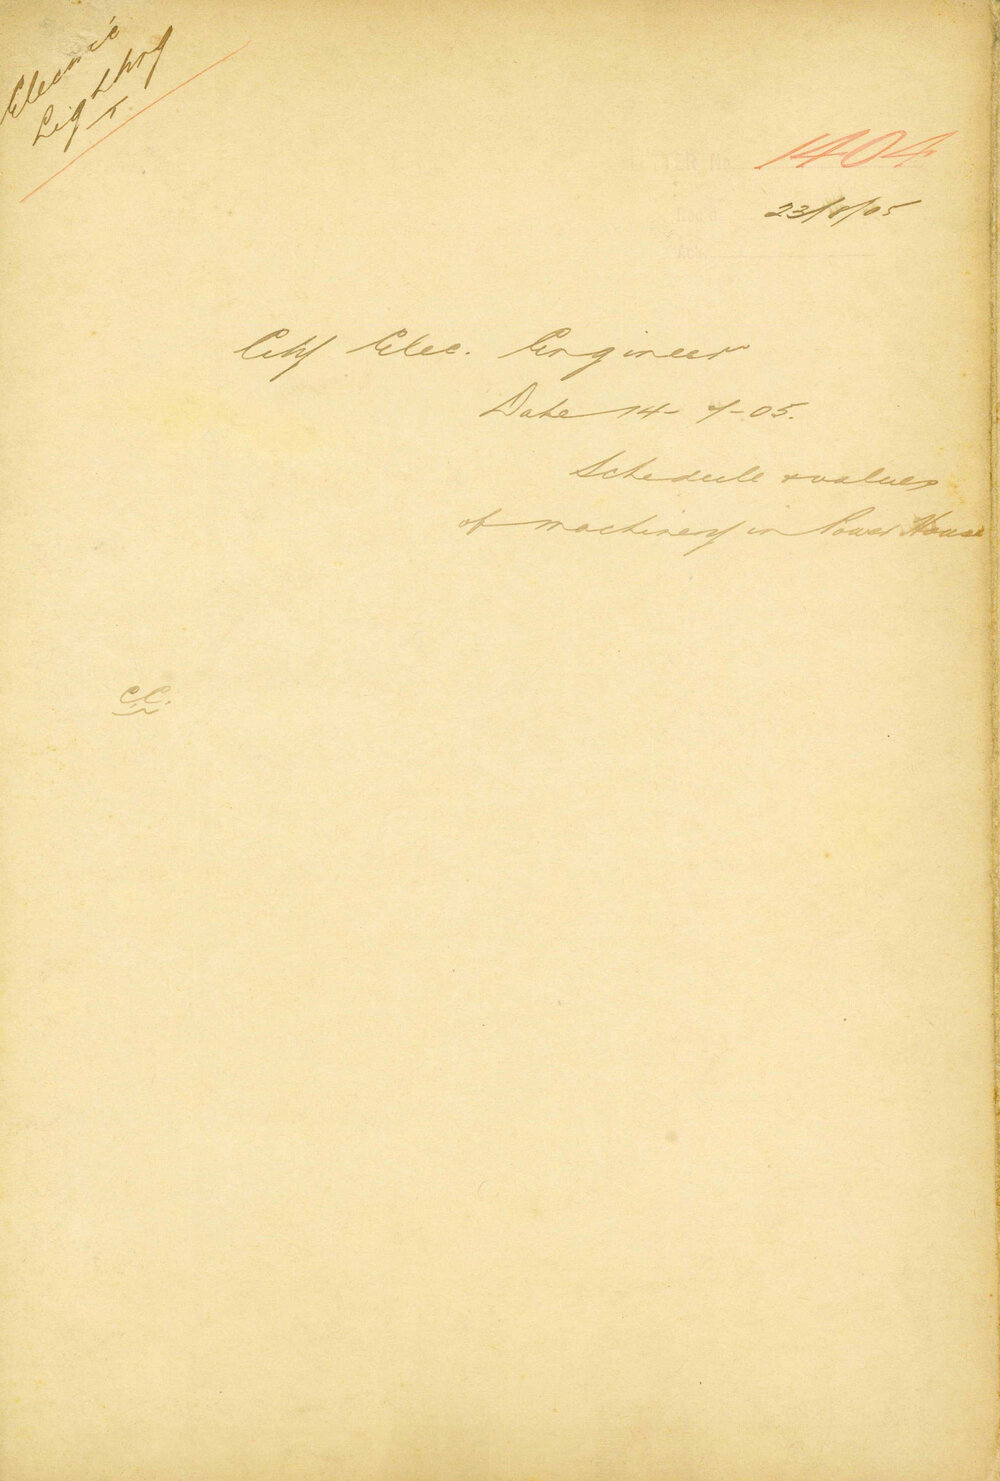 Electric
Lighting
1404
23/8/05
City Elec. Engineer
Date 14-7-05.
Schedule & values
of machinery in Power House
C.C.